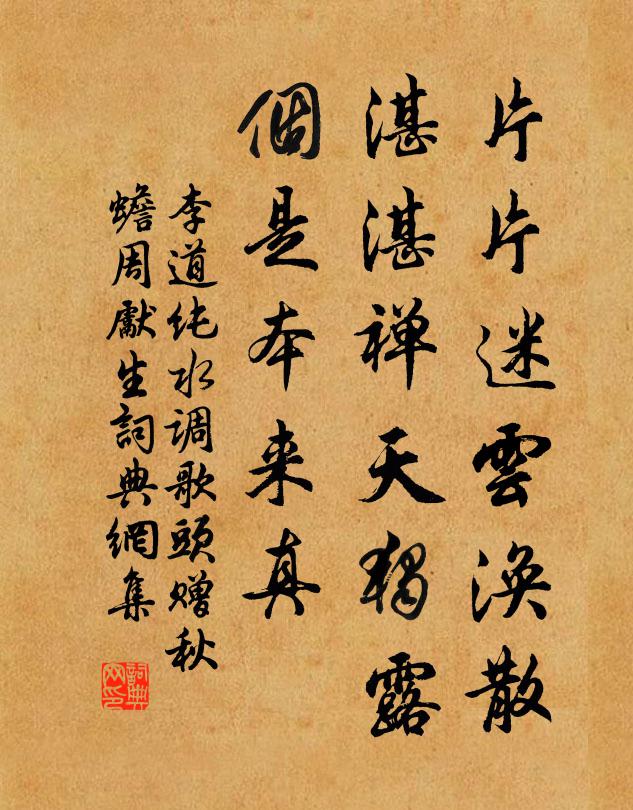 片片迷雲渙散
湛湛禅天獨露
個是本来真
李道纯水调歌頭赠秋
蟾周獻生詞典網集
詞典网印